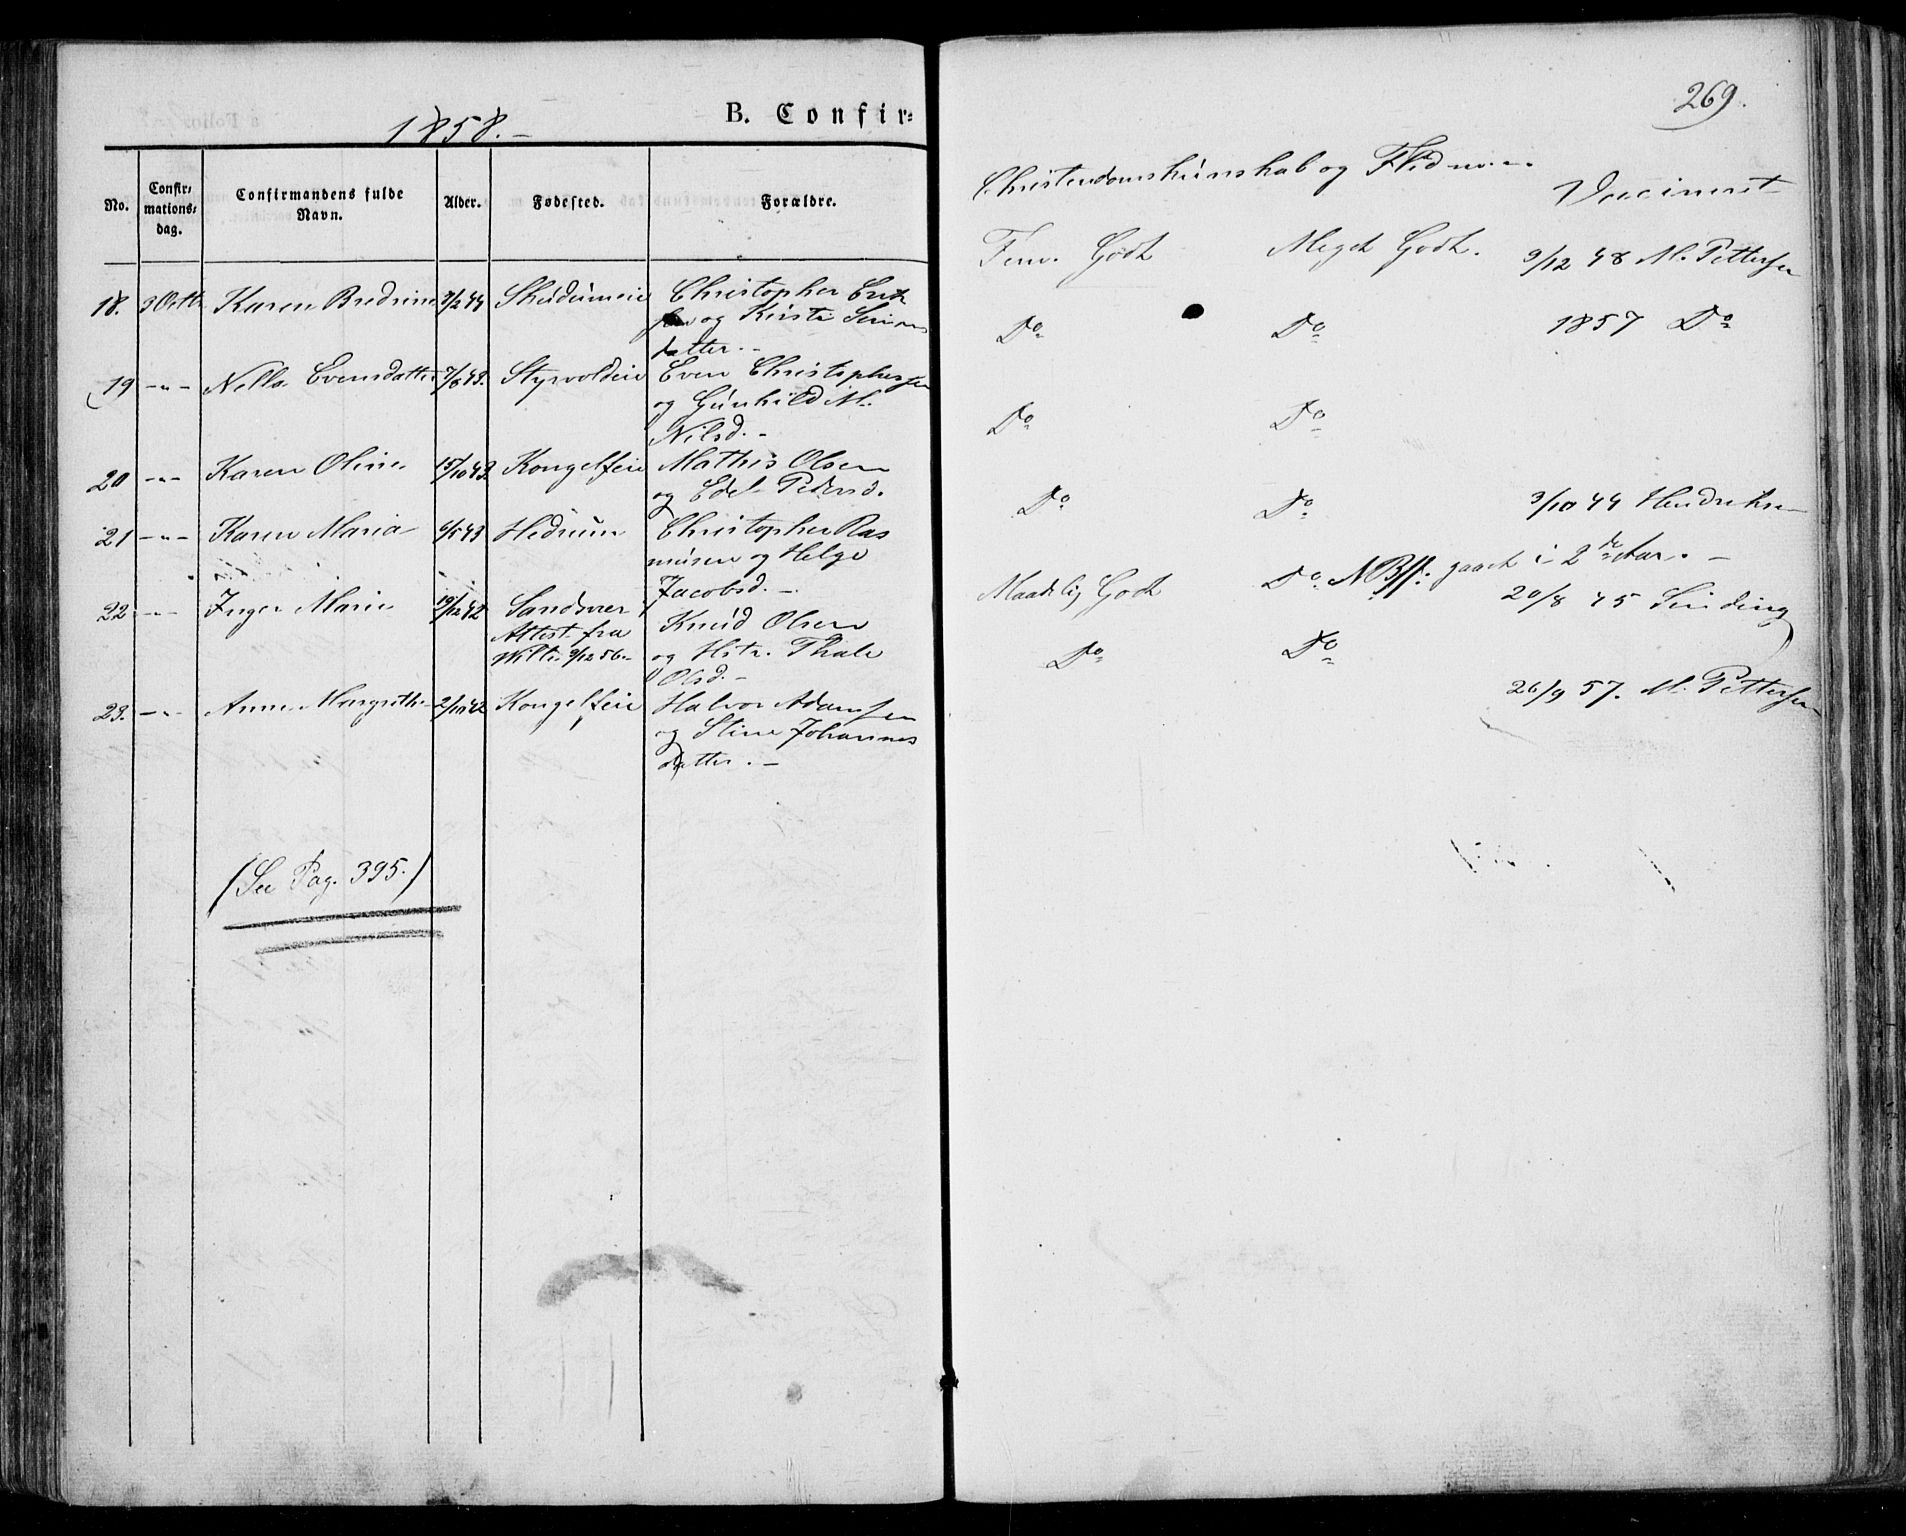 1858.-
B. Confir=
No.
Confir=
mations=
dag.
Confirmandens fulde
Navn.
Alder.
Fødested.
Forældre.
18. 3 Octb Karen Bredine 7/2 44 Skudumeie Christopher Erik
sen og Kirsti Simons
datter.-
19 -"- Nella Evensdatter 7/8 43. Styrvoldeie Even Christophersen
og Gunhild M.
Nilsd.-
20 -"- Karen Oline 15/10 43. Kongelfeie Mathis Olsen
og Edel Pedersd.
21 -"- Karen Maria 6/5 43 Hedrum Christopher Ras
musen og Helge
Jacobsd.-
22 -"- Inger Marie 19/12 42 Sandsvær Knud Olsen
Attest fra og Hstr. Thale
9/12 56- Olsd.-
23. -"- Anne Margrethe 2/10 42 Kongelfeie Halvor Adamsen
og Stine Johannes
datter.-
(See Pag. 395.)
269.
Christendomskunskab og Flid
Vaccineret
Godt Meget Godt. 9/12 48 M. Pettersen
Do Do 1857 Do
Do Do
Do Do 3/10 44 Hendriksen
Maadelig Godt Do NB//: gaaet i 2de Aar.-
20/8 45 Sinding
Do Do
26/9 57. M. Pettersen